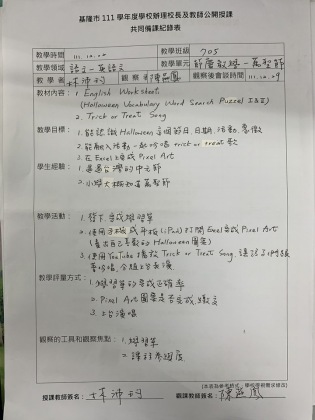 基隆市 111 學年度學校辦理校長及教師公開授課
共同備課紀錄表
教學時間 111.10.06 教學班級 705
教學領域 語文-英語文 教學單元 節慶教學-萬聖節
教學者 林沛玓 觀察者 觀察後會談時間
教材內容: 1. English Worksheets
(Halloween Vocabulary Word Search Puzzel I & II)
2. Trick or Treat Song
教學目標: 1. 能認識Halloween這個節日日期、活動、象徵
2. 能融入活動一起吟唱 trick or treat 歌
3. 在Excel上完成Pixel Art
學生經驗: 1. 過過台灣的中元節
2. 小學大概知道萬聖節
教學活動: 1. 發下並完成學習單
2. 使用手機或平板(iPad)打開Excel完成Pixel Art
(畫出自己喜歡的Halloween圖案)
3. 使用YouTube播放Trick or Treat Song,讓孩子們跟
著吟唱,分組上台表演
教學評量方式: 1. 學習單的完成正確率
2. Pixel Art圖案是否完成、繳交
3. 上台演唱
觀察的工具和觀察焦點: 1. 學習單
2. 課程參與度
授課教師簽名: 林沛玓 觀課教師簽名: 陳